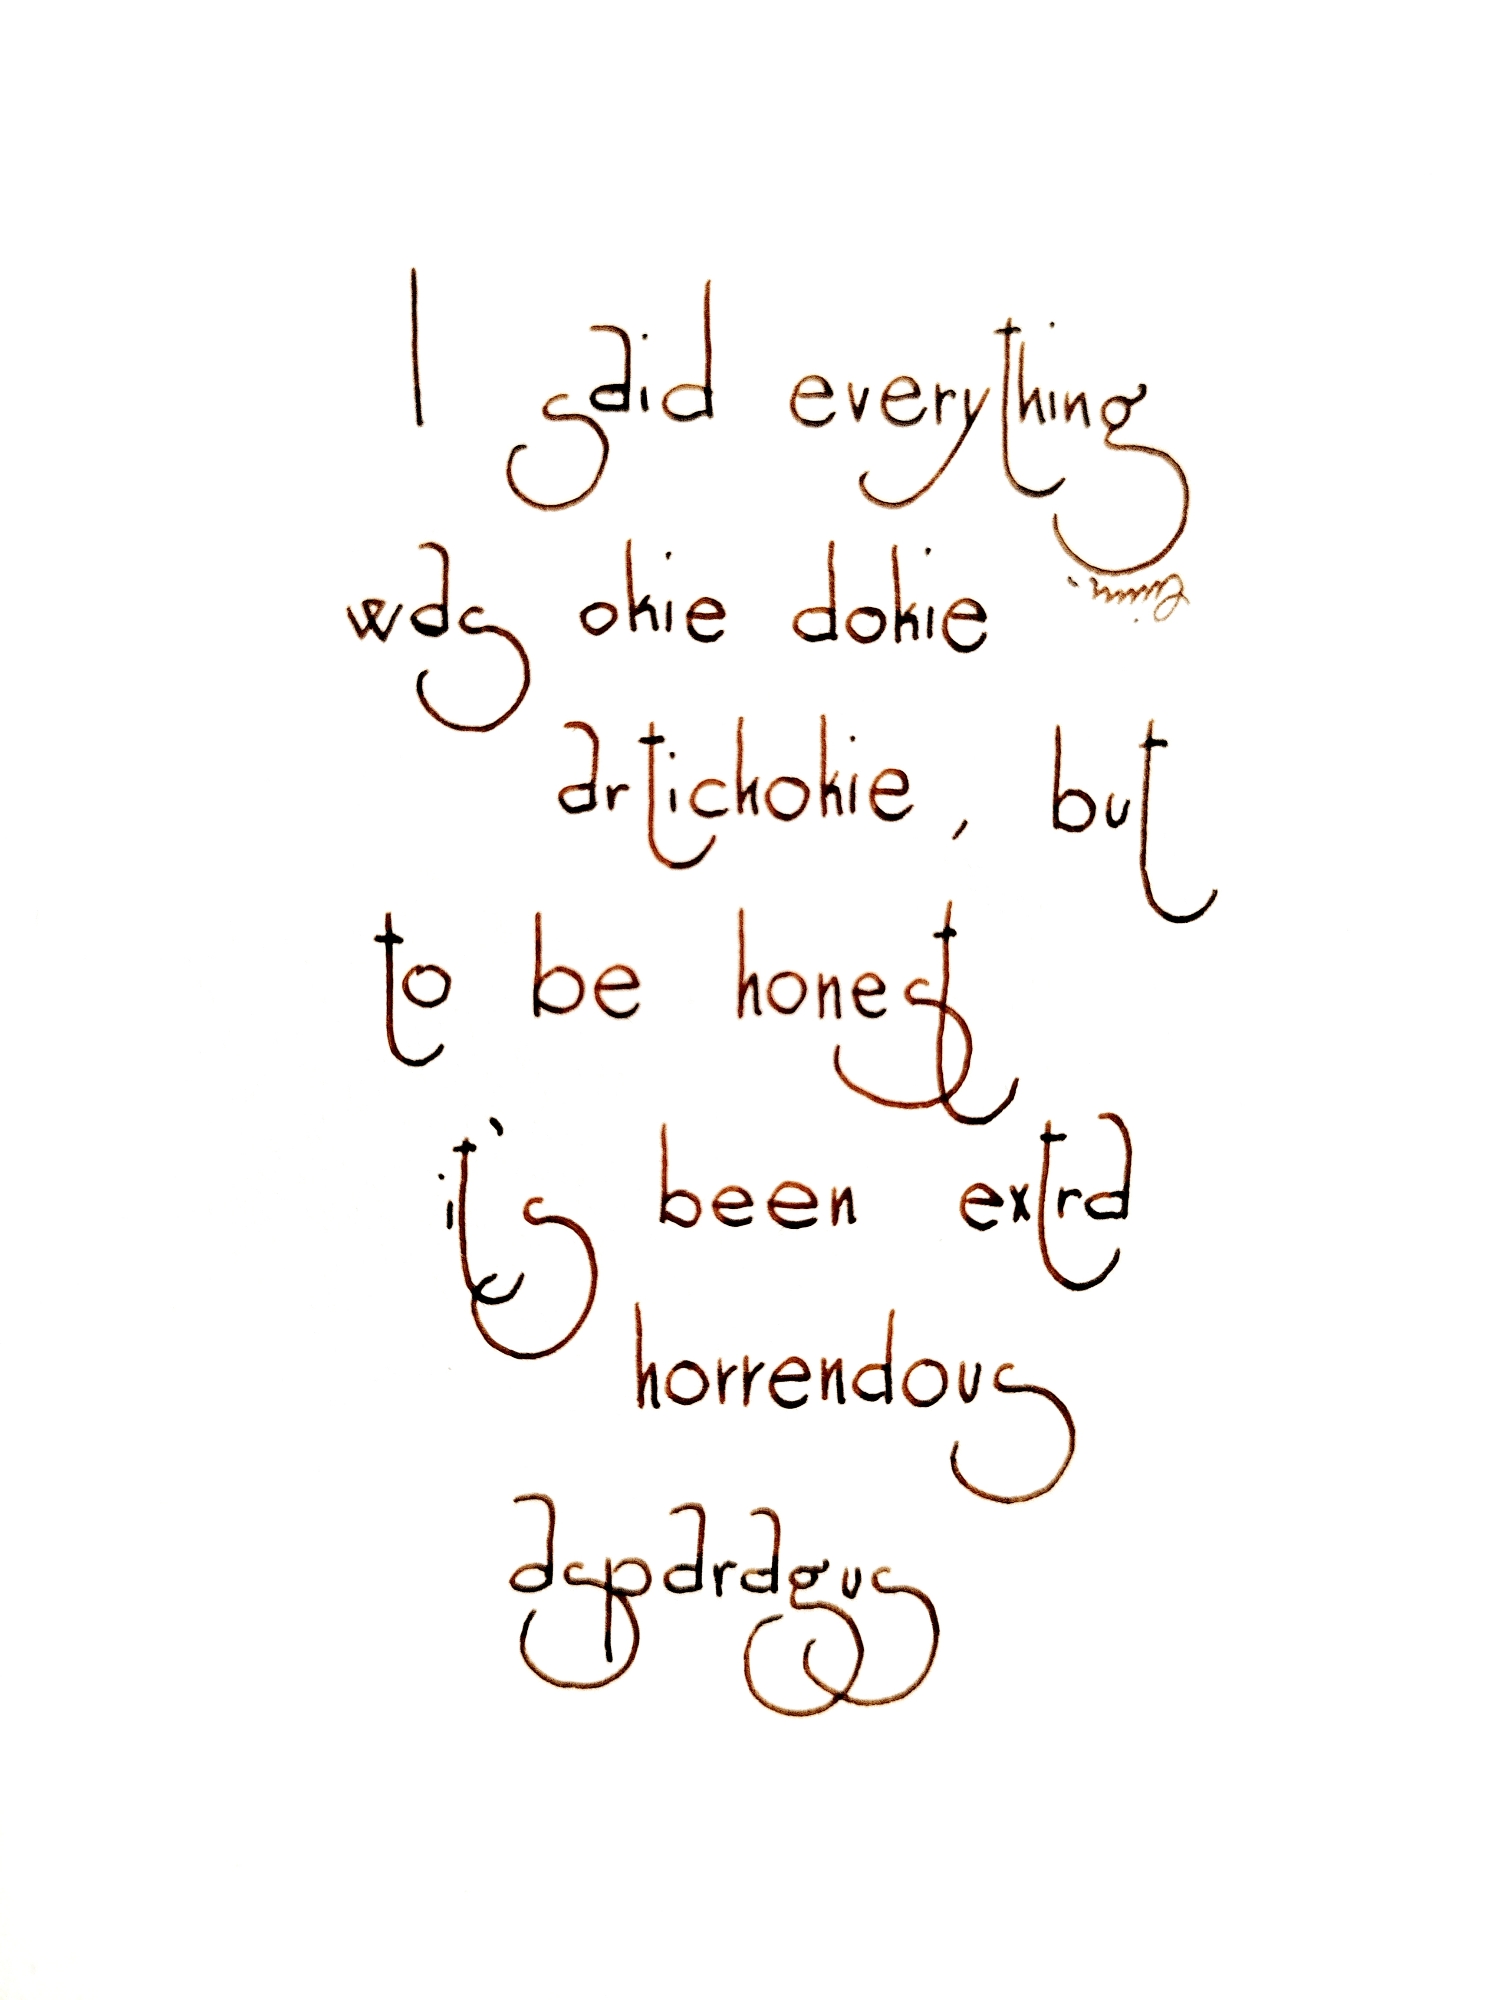 I said everything
was okie dokie
artichokie, but
to be honest
it's been extra
horrendous
asparagus